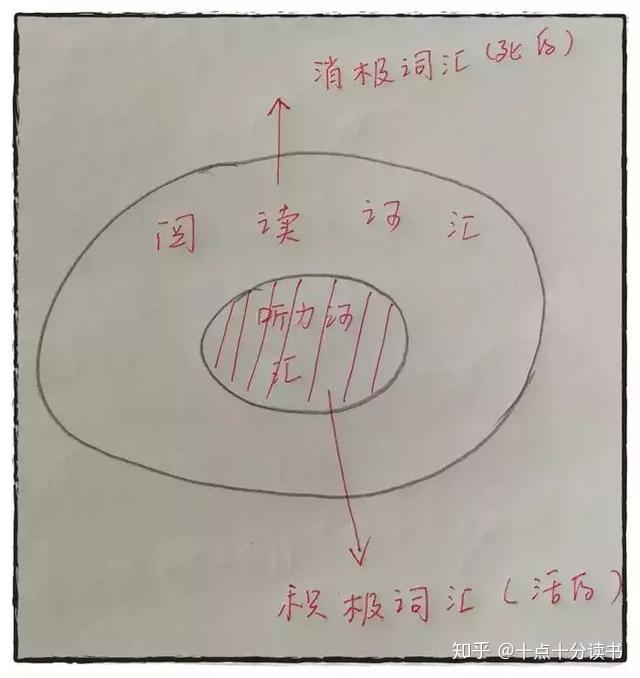 消极词汇(死的)
阅读词汇
听力词
汇
积极词汇(活的)
知乎 @十点十分读书